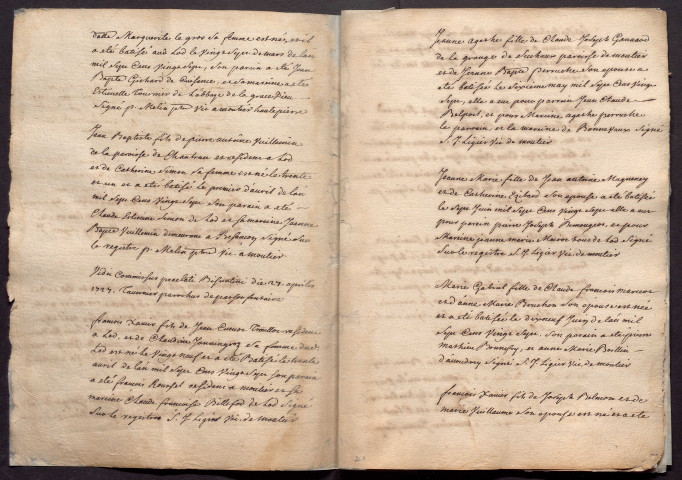 dalle Marguerite le gros sa femme est née, et il
a eté batisé aud Lod le vingt sept de mars de lan
mil sept cens vingt sept, son parain a eté Jean
Bapte Guichard de Cuisance, et sa mareine a eté
Etienette Tournier de Labbaye de la grace Dieu
Signé p. Melin ptre vic a moutier hautepierre
Jean Baptiste fils de pierre antoine Vuillemin
de la paroisse de Chantran et residens a Lod
et de Catherine Simon sa femme est né le trente
et un et a eté batisé le premier d'avril de lan
mil sept cens vingt sept son parain a eté
Claude Estienne Simon de Lod et sa mareine Jeanne
Bapte Vuillemin demeurant a Besançon Signé Sur
le registre p. Melin ptre vic a moutier
Vidi Commissus praelati Bisuntini die 27 aprilis
1727. Tournier parochus de passonfontaine
francois Xavier fils de Jean residens
a Lod, et de Claudine sa femme dud.
Lod est né le vingt neuf et a eté Batisé le trente
avril de lan mil sept cens vingt sept son parain
a eté francois residens a moutier et sa
mareine Claude francoise Billefod de Lod Signé
Sur le registre S. J. Ligier Vic. de moutier
Jeanne agathe fille de Claude Joseph
de la grange de paroisse de moutier
et de Jeanne Bapte perruche son epouse a
eté batisée le sixieme may mil sept cens vingt
sept, elle a eu pour parrain Jean Claude
Belpois, et pour Mareine agathe perruche
le parrain et la mareine de Bonnevaux Signé
S. J. Ligier Vic de moutier
Jeanne Marie fille de Jean antoine Magneney
et de Catherine son epouse a eté batisée
le sept Juin mil sept cens vingt sept elle a eu
pour parin pierre Joseph et pour
Mareine jeanne marie tous de Lod Signé
Sur le registre S. J. Ligier Vic. de moutier
Marie Gabriel fille de Claude francois
et d'anne Marie Bruchon son epouse est née
et a eté batisée le dixneuf Juin de lan mil
sept cens vingt sept. Son parain a eté pierre
mathieu et anne Marie
Signé S. J. Ligier Vic. de moutier
francois Xavier fils de Joseph et de
marie Vuillaume son epouse est né et a eté